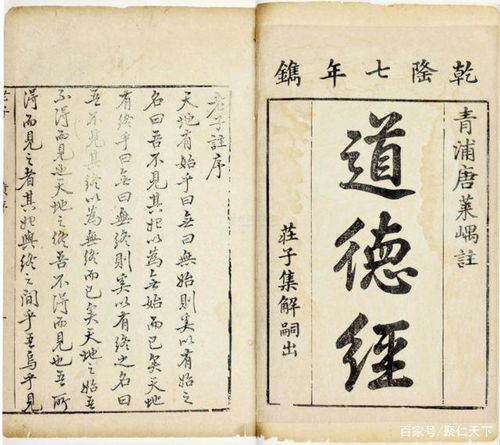 乾隆七年鐫
青浦唐萊嵎註
道德經
莊子集解嗣出
老子註序
天地有始乎曰無曰無始則奚以有始之
名曰吾不見其始以為無始而已矣天地
有終乎曰無曰無終則奚以有終之名曰
吾不見其終以為無終而已矣天地之始吾
不得而見也天地之終吾不得而見也吾所
得而見之者其始與終之間乎吾烏乎見
百家号/聚仁天下